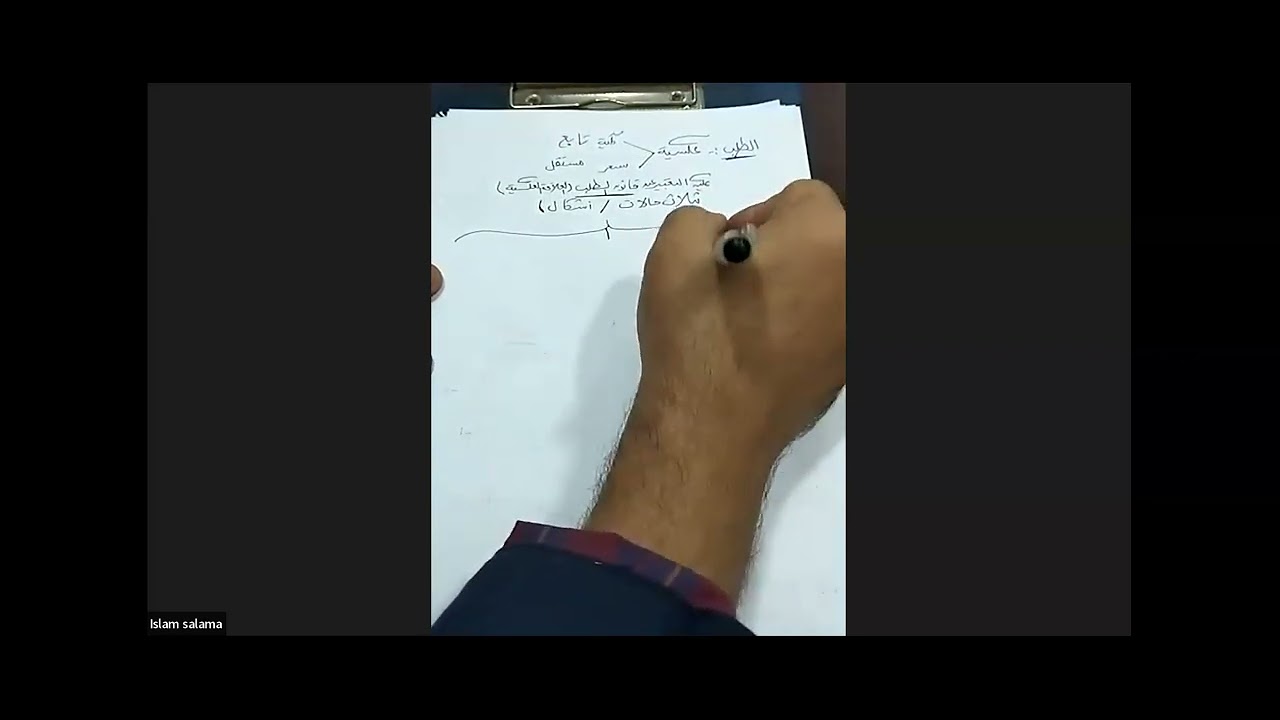 الطلب :- عكسية كمية تابع
سعر مستقل
عليه التعبير عنه قانون الطلب (العلاقة العكسية)
ثلاث حالات / أشكال)
Islam salama